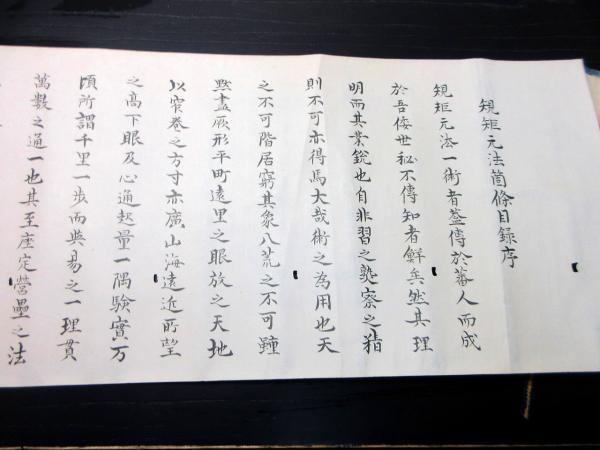 規矩元法箇條目録序
規矩元法一術者蓋傳於蕃人而成
於吾倭世秘不傳知者鮮矣然其理
明而其業鋭也自非習之熟察之精
則不可亦得焉大哉術之為用也天
之不可階居窮其象八荒之不可踵
默畫厥形平町遠里之眼放之天地
以窄巻之方寸亦廣山海遠近所望
之高下眼及心通起量一隅験實万
頃所謂千里一歩而與易之一理貫
萬數之通一也其至座定營壘之法